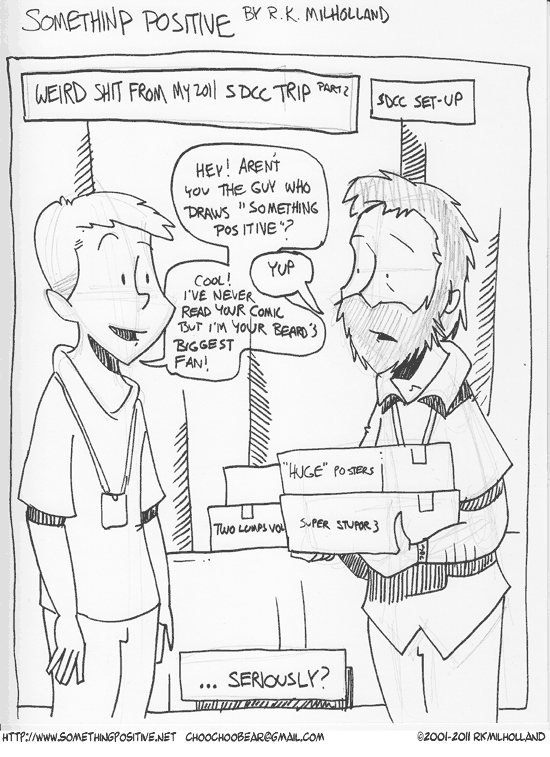 SOMETHING POSITIVE BY R.K. MILHOLLAND
WEIRD SHIT FROM MY 2011 SDCC TRIP PART 2
SDCC SET-UP
HEY! AREN'T
YOU THE GUY WHO
DRAWS "SOMETHING
POSITIVE"?
YUP
COOL!
I'VE NEVER
READ YOUR COMIC
BUT I'M YOUR BEARD'S
BIGGEST
FAN!
"HUGE" POSTERS
TWO LUMPS VOL
SUPER STUPOR 3
... SERIOUSLY?
HTTP://WWW.SOMETHINGPOSITIVE.NET CHOOCHOOBEAR@GMAIL.COM ©2001-2011 RKMILHOLLAND